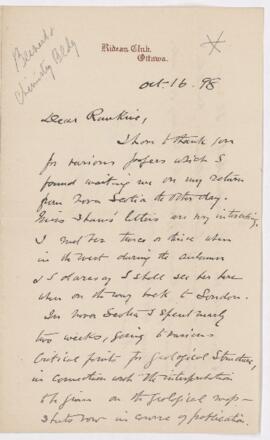 Rideau Club,
Ottawa.
Chemistry Bldg
Oct. 16. 98
Dear Rankine,
I have to thank you
for various papers which I
found waiting me on my return
from Nova Scotia the other day.
Miss Shaw's letters are very interesting,
I met her twice or thrice when
in the West during the autumn
& I daresay I shall see her here
when on the way back to London.
In Nova Scotia I spent nearly
two weeks, going to various
critical points for geological structure,
in connection with the interpretation
to be given on the geological map —
sheets now in course of publication.